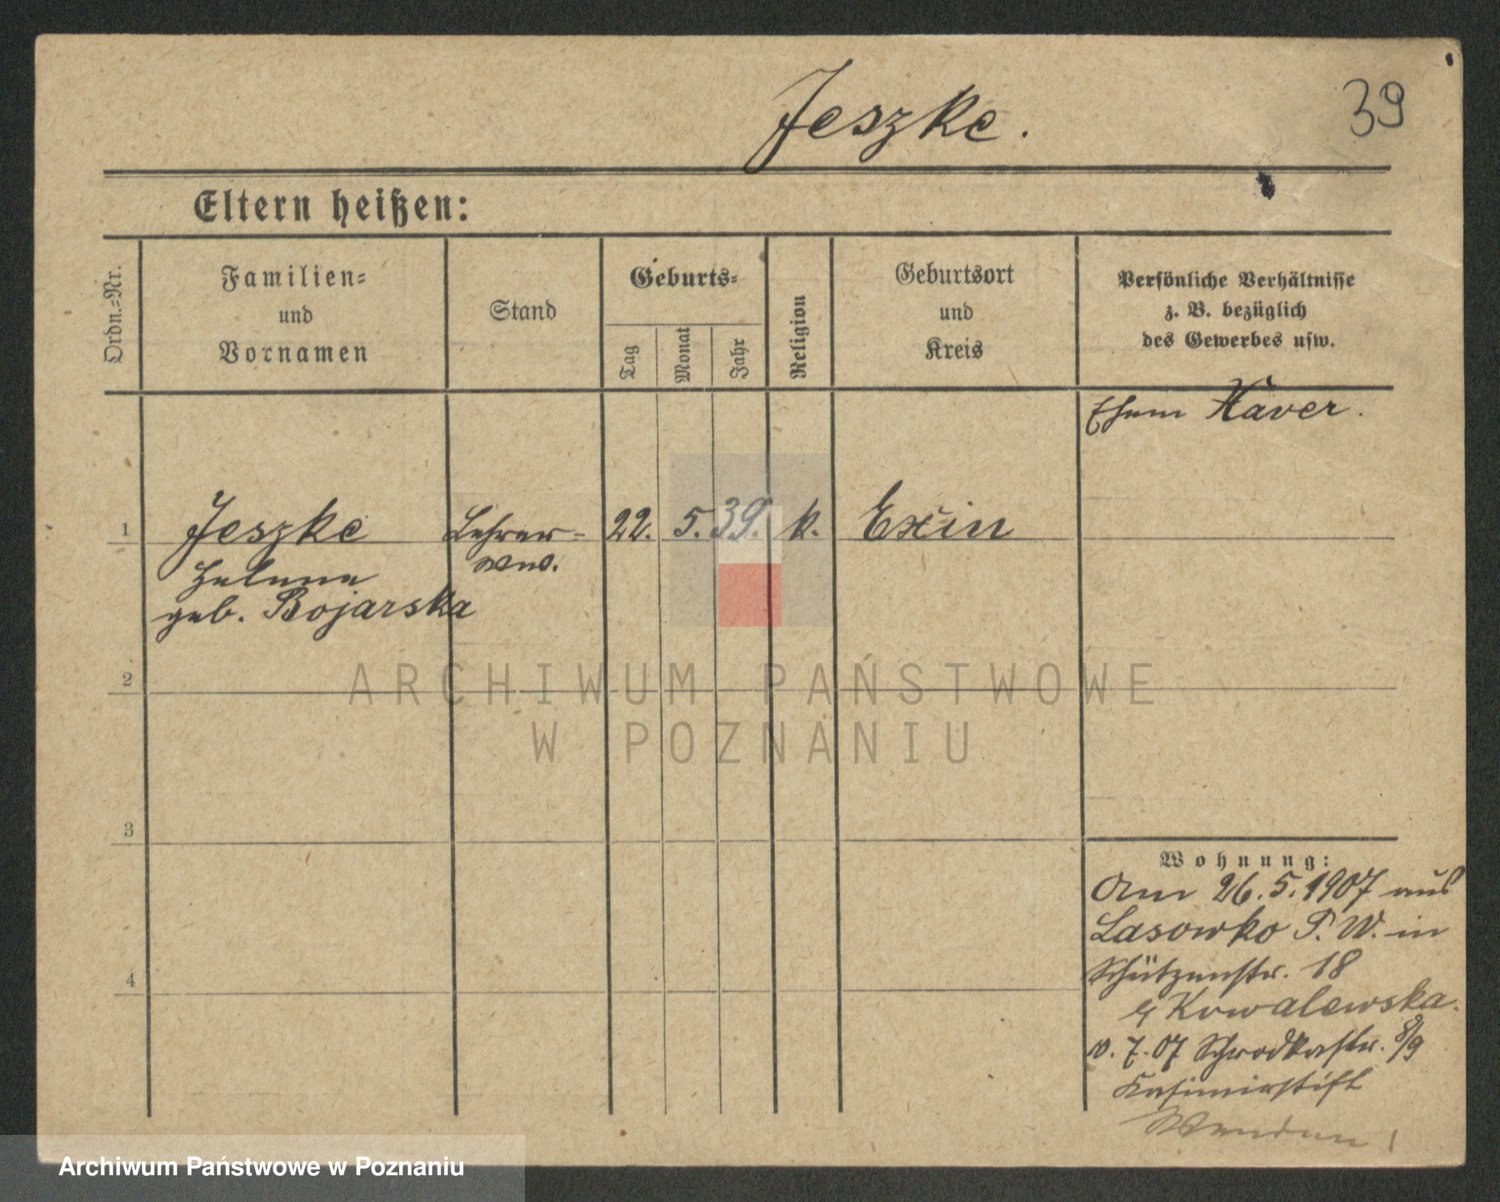 39
Jeszke.
Eltern heißen:
Ordn.=Nr.
Familien=
und
Vornamen
Stand
Geburts=
Tag
Monat
Jahr
Religion
Geburtsort
und
Kreis
Persönliche Verhältnisse
z. B. bezüglich
des Gewerbes usw.
Ehem Xaver.
1
Jeszke Lehrer= 22. 5. 39. k. Exin
Helene wwe.
geb. Bojarska
2
ARCHIWUM PAŃSTWOWE
W POZNANIU
3
Wohnung:
Am 26.5.1907 aus
Lasowko P. W. in
Schützenstr. 18
Kowalewska.
10. 7. 07 Schrodkastr. 8/9
Kasimirstift
4
Archiwum Państwowe w Poznaniu